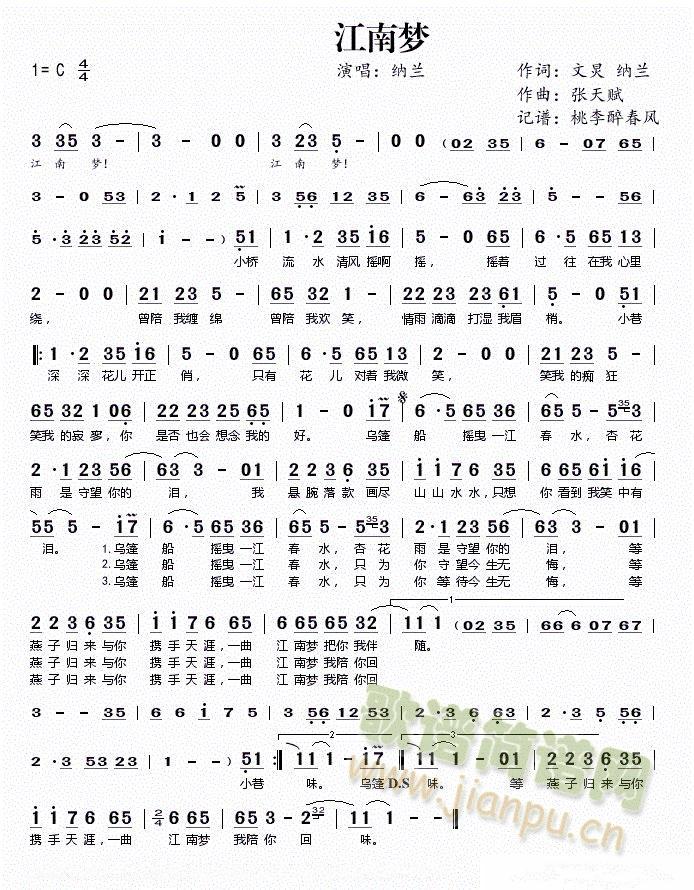 江南梦
1= C 4/4 演唱：纳兰 作词：文炅 纳兰
作曲：张天赋
记谱：桃李醉春风
3 35 3 - | 3 - 0 0 | 3 23 5 - | 0 0 (02 35 | 6 - 07 65 |
江 南 梦！ 江 南 梦！
3 - 0 53 | 2 · 1 2 5 | 3 56 12 35 | 6 - 63 23 | 5 - - 56 |
5 · 3 23 52 | 1 - - ) 51 | 1 · 2 35 16 | 5 - 0 65 | 6 · 3 65 13 |
小桥 流 水 清风 摇啊 摇， 摇着 过 往 在我 心里
2 - 0 0 | 21 23 5 - | 65 32 1 - | 21 23 23 61 | 5 - 0 51 |
绕， 曾陪 我缠 绵 曾陪 我欢 笑， 情雨 滴滴 打湿 我眉 梢。 小巷
‖: 1 · 2 35 16 | 5 - 0 65 | 6 · 5 65 13 | 2 - 0 0 | 21 23 5 - |
深 深 花儿 开正 俏， 只有 花 儿 对着 我微 笑， 笑我 的痴 狂
65 32 1 06 | 22 23 25 65 | 1 - 0 17 | 6 · 5 65 36 | 5 · 5 5 - 5 35 |
笑我 的寂 寥，你 是否 也会 想念 我的 好。 乌篷 船 摇曳 一江 春 水，杏花
2 · 1 23 56 | 63 3 - 01 | 2 2 3 6 35 | 1 1 7 6 65 | 6 65 6 1 16 |
雨 是 守望 你的 泪， 我 悬 腕 落 款 画尽 山 山 水 水，只想 你 看到 我 笑 中有
55 5 - 17 | 6 · 5 65 36 | 5 · 5 5 - 5 35 | 2 · 1 23 56 | 63 3 - 01 |
泪。 1.乌篷 船 摇曳 一江 春 水，杏花 雨 是 守望 你的 泪， 等
2.乌篷 船 摇曳 一江 春 水，只为 你 守望 今生 无 悔， 等
3.乌篷 船 摇曳 一江 春 水，只为 你 等待 今生 无 悔， 等
2 2 3 6 35 | 1 1 7 6 65 | 6 65 65 32 | 11 1 - (02 35 | 66 07 67 |
燕 子 归 来 与你 携 手 天 涯，一曲 江 南梦 把你 我伴 随。
燕 子 归 来 与你 携 手 天 涯，一曲 江 南梦 我陪 你回
燕 子 归 来 与你 携 手 天 涯，一曲 江 南梦 我陪 你回
3 - - 35 | 6 6 1 7 5 | 3 56 12 53 | 2 · 3 6 63 | 5 - - 56 |
2 · 3 53 23 | 1 - - ) 51 :‖ 11 1 - 17 :‖ 11 1 - 01 | 2 2 3 6 35 |
小巷 味。 乌篷 D.S 味。 等 燕 子 归 来 与你
1 1 7 6 65 | 2/4 6 65 | 65 3 - 2 32 | 11 1 - - ‖
携 手 天 涯，一曲 江 南梦 我陪 你 回 味。
歌谱简谱网
www.jianpu.cn